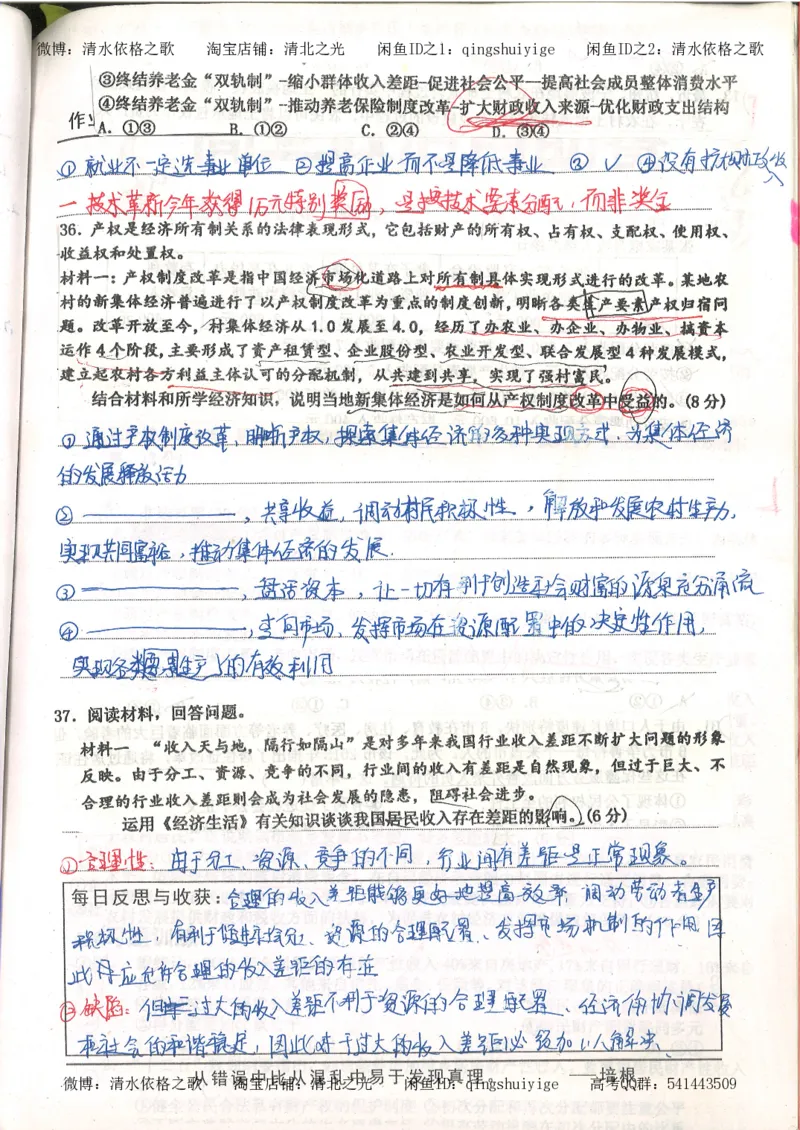 微博：清水依格之歌 淘宝店铺：清北之光 闲鱼ID之1：qingshuiyige 闲鱼ID之2：清水依格之歌
③终结养老金“双轨制”-缩小群体收入差距-促进社会公平—提高社会成员整体消费水平
④终结养老金“双轨制”-推动养老保险制度改革-扩大财政收入来源-优化财政支出结构
作
A．①③ B．①② C．②④ D．③④
①就业不一定选事业单位 ②提高企业而不是降低事业 ③√ ④没有扩大财政收入
一技术革新今年获得1万元特别奖励，是按技术要素分配，而非奖金
36．产权是经济所有制关系的法律表现形式，它包括财产的所有权、占有权、支配权、使用权、
收益权和处置权。
材料一：产权制度改革是指中国经济市场化道路上对所有制具体实现形式进行的改革。某地农
村的新集体经济普遍进行了以产权制度改革为重点的制度创新，明晰各类生产要素产权归宿问
题。改革开放至今，村集体经济从 1.0 发展至 4.0，经历了办农业、办企业、办物业、搞资本
运作 4 个阶段，主要形成了资产租赁型、企业股份型、农业开发型、联合发展型 4 种发展模式，
建立起农村各方利益主体认可的分配机制，从共建到共享，实现了强村富民。
结合材料和所学经济知识，说明当地新集体经济是如何从产权制度改革中受益的。（8 分）
①通过产权制度改革、明晰产权，探索集体经济的多种实现方式，为集体经济
的发展释放活力
②————，共享收益，调动村民积极性，解放和发展农村生产力，
实现共同富裕，推动集体经济的发展.
③————，盘活资本，让一切有利于创造社会财富的源泉充分涌流
④————，走向市场、发挥市场在资源配置中的决定性作用，
实现各类要素生产的有效利用
37．阅读材料，回答问题。
材料一 “收入天与地，隔行如隔山”是对多年来我国行业收入差距不断扩大问题的形象
反映。由于分工、资源、竞争的不同，行业间的收入有差距是自然现象，但过于巨大、不
合理的行业收入差距则会成为社会发展的隐患，阻碍社会进步。
运用《经济生活》有关知识谈谈我国居民收入存在差距的影响。（6 分）
①合理性：由于分工、资源、竞争的不同，行业间有差距是正常现象。
每日反思与收获：合理的收入差距能够更好地提高效率 调动劳动者生产
积极性，有利于促进、资源的合理配置、发挥市场机制的作用 因
此应允许合理的收入差距的存在
②缺陷：但过大的收入差距不利于资源的合理配置、经济的协调发展
和社会的和谐稳定，因此对于过大的收入差距必须加以解决
从错误中比从混乱中易于发现真理 ——培根
微博：清水依格之歌 淘宝店铺：清北之光 闲鱼ID之1：qingshuiyige 高考QQ群：541443509